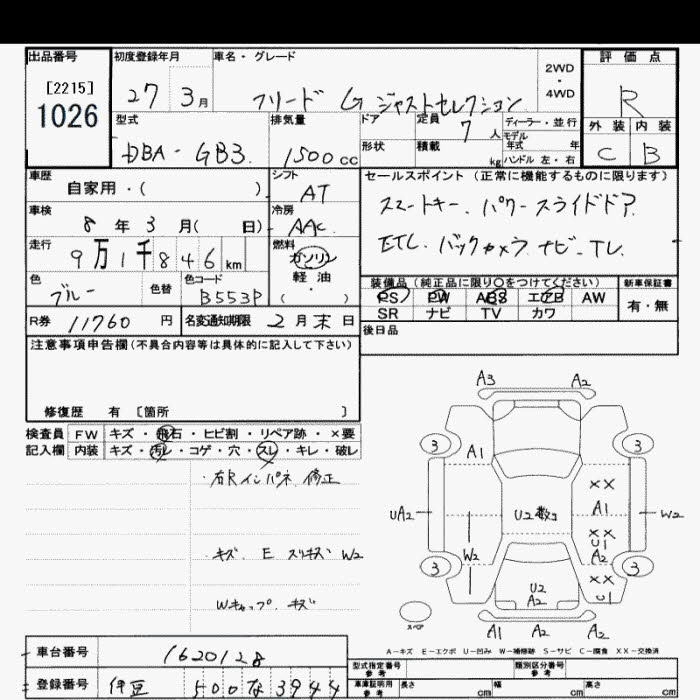 出品番号
[2215]
1026
初度登録年月
27 3月
車名・グレード
フリード G ジャストセレクション
2WD
・
4WD
評価点
R
外装 内装
C B
型式
DBA-GB3
排気量
1500 cc
ドア
形状
定員
7 人
積載
kg
ディーラー・並行
モデル
年式 年
ハンドル 左・右
車歴
自家用・( )
シフト
AT
車検
8 年 3 月( 日)
冷房
AAC
走行
9万1千846 km
燃料
ガソリン
軽油
( )
色
ブルー
色替
色コード
B553P
R券 11760 円
名変通知期限 2月末日
セールスポイント(正常に機能するものに限ります)
スマートキー、パワースライドドア
ETC、バックカメラ、ナビ、TV
装備品(純正品に限り〇をつけてください)
PS PW ABS エアB AW
SR ナビ TV カワ
新車保証書
有・無
後日品
注意事項申告欄(不具合内容等は具体的に記入して下さい)
修復歴 有 [箇所 ]
検査員
記入欄
FW キズ・飛石・ヒビ割・リペア跡・×要
内装 キズ・汚レ・コゲ・穴・スレ・キレ・破レ
・右Rインパネ 修正
・キズ E スリキズ W2
Wキャップ キズ
A3 A2
3 3
A1
XX
A1
UA2
U2数コ
W2
XX
U1
A2
W2
3 3
XX
U1
U2
A2
スペア
A1 A2 A2
A-キズ E-エクボ U-凹み W-補修跡 S-サビ C-腐食 XX-交換済
車台番号 1620128
登録番号 伊豆 500 な 3944
型式指定番号
参考
類別区分番号
参考
車庫証明用
参考
長さ cm 幅 cm 高さ cm